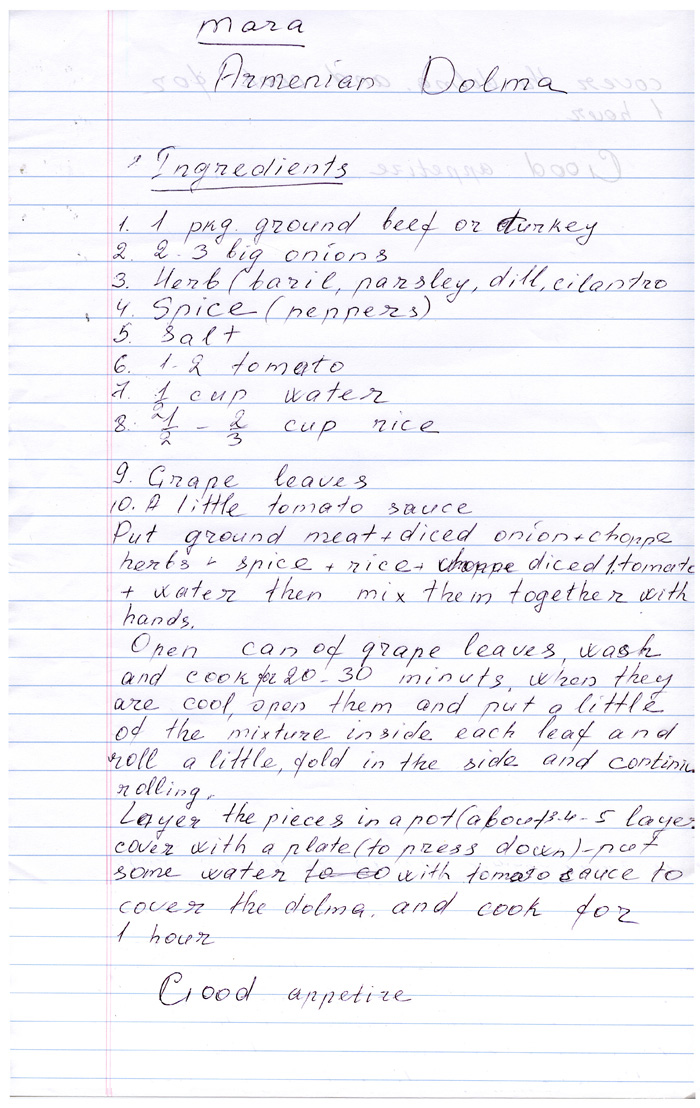 Mara
Armenian Dolma
Ingredients
1. 1 pkg. ground beef or turkey
2. 2-3 big onions
3. Herb (bazil, parsley, dill, cilantro
4. Spice (peppers)
5. Salt
6. 1-2 tomato
7. 1/2 cup water
8. 1/2 - 2/3 cup rice
9. Grape leaves
10. A little tomato sauce
Put ground meat + diced onion + choppe
herbs + spice + rice + choppe diced 1 tomato
+ water then mix them together with
hands.
Open can of grape leaves, wash
and cook for 20-30 minuts, when they
are cool, open them and put a little
of the mixture inside each leaf and
roll a little, fold in the side and continu
rolling.
Layer the pieces in a pot (about 3-4-5 layer
cover with a plate (to press down) - put
some water to co with tomato sauce to
cover the dolma, and cook for
1 hour
Good appetize